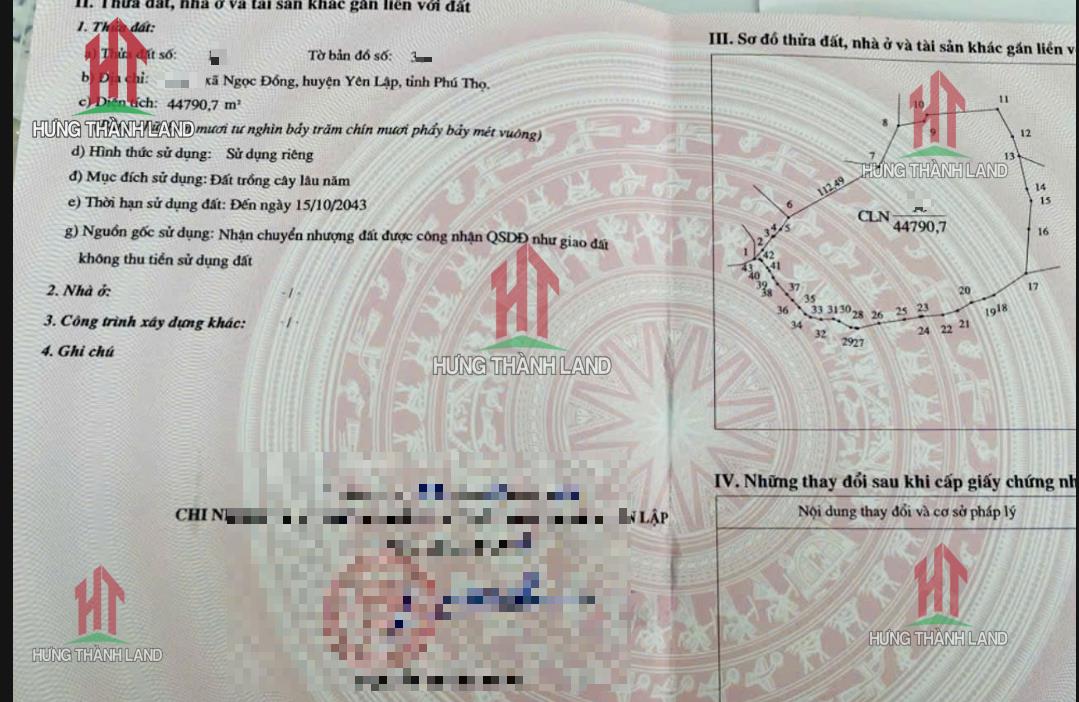 II. Thửa đất, nhà ở và tài sản khác gắn liền với đất
1. Thửa đất:
a) Thửa đất số: Tờ bản đồ số: 3
b) Địa chỉ: xã Ngọc Đồng, huyện Yên Lập, tỉnh Phú Thọ.
c) Diện tích: 44790,7 m²
mươi tư nghìn bảy trăm chín mươi phẩy bảy mét vuông)
d) Hình thức sử dụng: Sử dụng riêng
đ) Mục đích sử dụng: Đất trồng cây lâu năm
e) Thời hạn sử dụng đất: Đến ngày 15/10/2043
g) Nguồn gốc sử dụng: Nhận chuyển nhượng đất được công nhận QSDĐ như giao đất
không thu tiền sử dụng đất
2. Nhà ở: -/-
3. Công trình xây dựng khác: -/-
4. Ghi chú
CHI N LẬP
III. Sơ đồ thửa đất, nhà ở và tài sản khác gắn liền v
10 11
8 9 12
7 13
112,49
14
6 15
CLN 44790,7
3 4 5 16
1 2
42
43 41
40 17
39 37
38 35 20
36 33 31 30 28 26 25 23 19 18
34 32 24 22 21
29 27
IV. Những thay đổi sau khi cấp giấy chứng nh
Nội dung thay đổi và cơ sở pháp lý
HƯNG THÀNH LAND
HƯNG THÀNH LAND
HƯNG THÀNH LAND
HƯNG THÀNH LAND
HƯNG THÀNH LAND